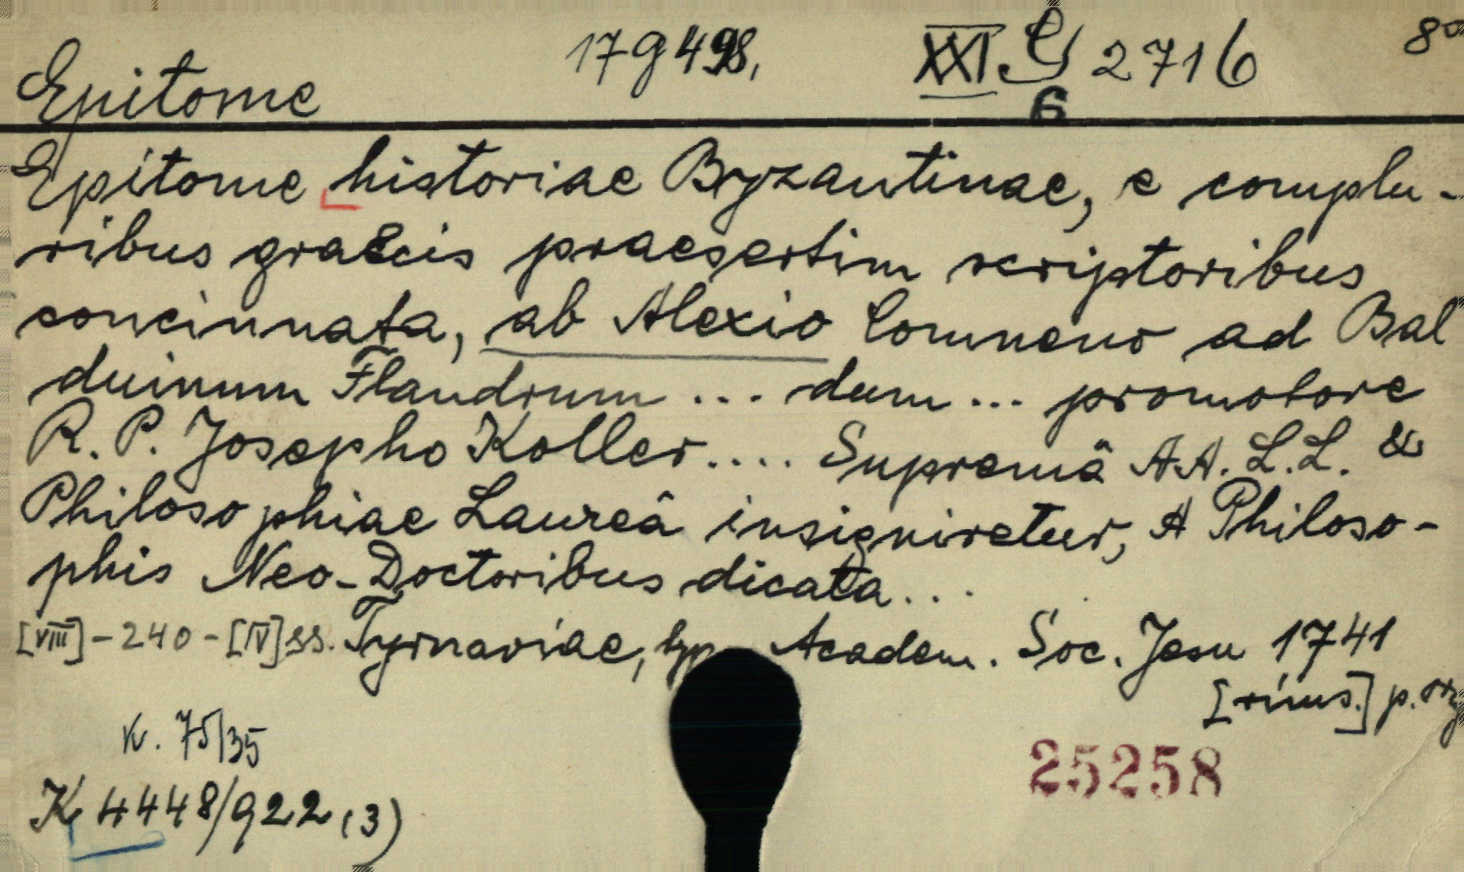 Epitome 179498, XXI. G 2716 8°
6
Epitome historiae Byzantinae, e complu-
ribus graecis praesertim scriptoribus
concinnata, ab Alexio Comneno ad Bal
duinum Flandrum ... dum ... promotore
R. P. Josepho Koller.... Supremâ AA. L.L. &
Philosophiae Laureâ insigniretur, A Philoso-
phis Neo-Doctoribus dicata...
[VIII]-240-[IV]ss. Tyrnaviae, typ. Academ. Soc. Jesu 1741
p.
K. 75/35
25258
K 4448/922 (3)